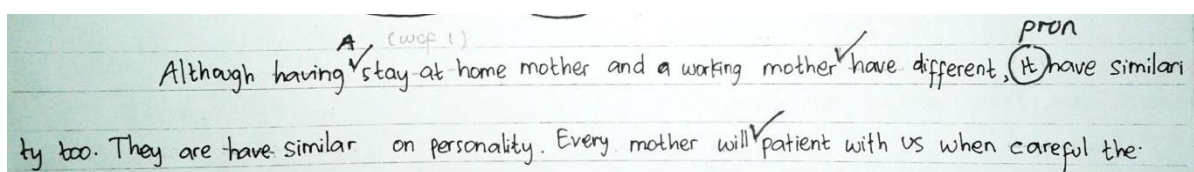 pron
A (wcf 1)
Although having stay-at home mother and a working mother have different, it have similari
ty too. They are have similar on personality. Every mother will patient with us when careful the